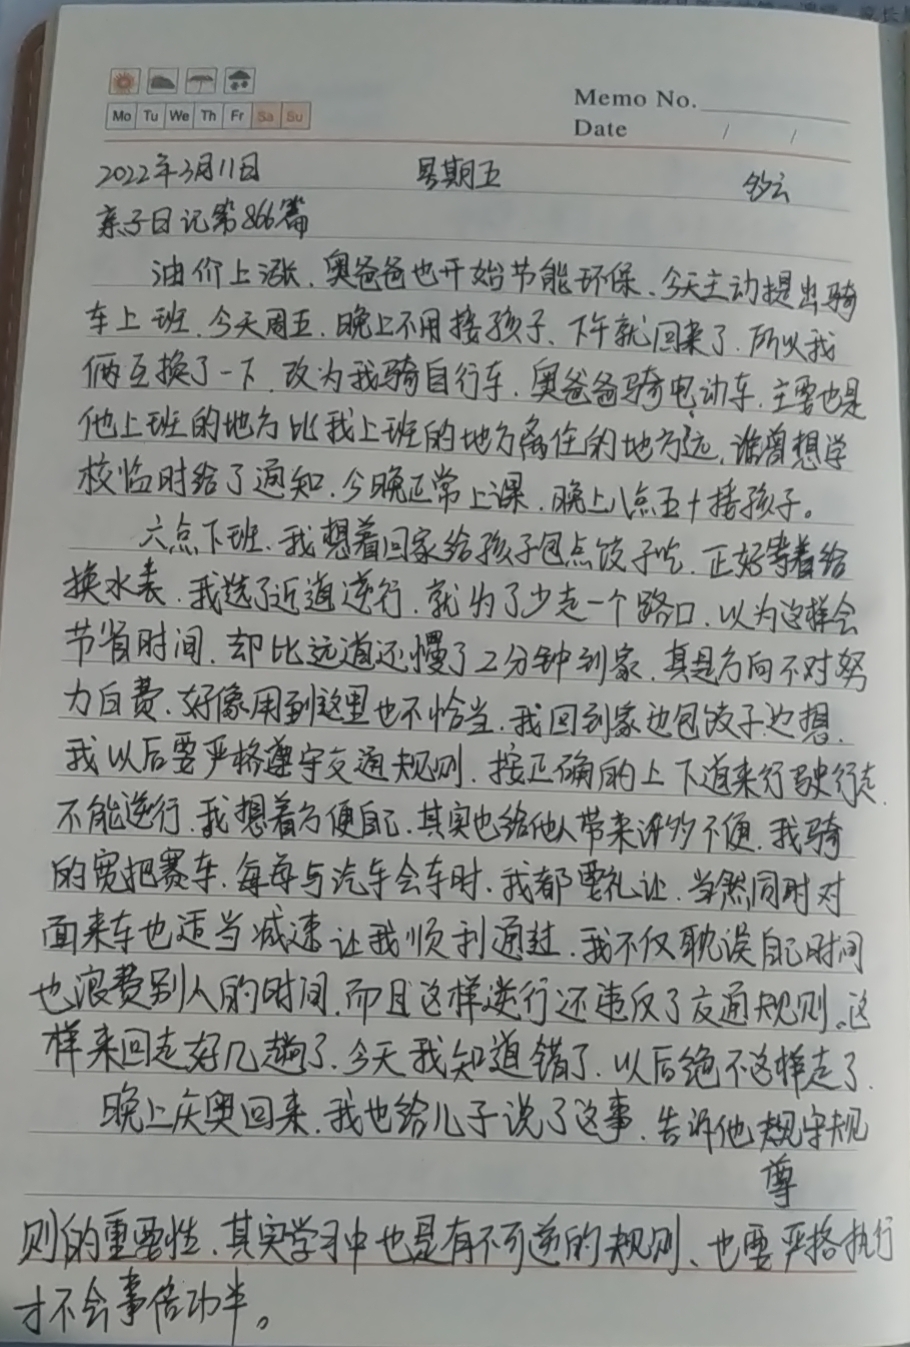 Mo Tu We Th Fr Sa Su
Memo No.
Date / /
2022年3月11日 星期五 多云
亲子日记第866篇
油价上涨、奥爸爸也开始节能环保、今天主动提出骑
车上班、今天周五、晚上不用接孩子、下午就回来了、所以我
俩互换了一下、改为我骑自行车、奥爸爸骑电动车、主要也是
他上班的地方比我上班的地方离住的地方远,谁曾想学
校临时给了通知、今晚正常上课、晚上八点五十接孩子。
六点下班、我想着回家给孩子包点饺子吃、正好等着给
换水表、我选了近道逆行、就为了少走一个路口、以为这样会
节省时间、却比远道还慢了2分钟到家、真是方向不对努
力白费、好像用到这里也不恰当、我回到家边包饺子边想、
我以后要严格遵守交通规则、按正确的上下道来行驶行走、
不能逆行、我想着方便自己、其实也给他人带来许多不便、我骑
的宽把赛车、每每与汽车会车时、我都要礼让、当然同时对
面来车也适当减速让我顺利通过、我不仅耽误自己时间
也浪费别人的时间、而且这样逆行还违反了交通规则、这
样来回走好几趟了、今天我知道错了、以后绝不这样走了、
晚上庆奥回来、我也给儿子说了这事、告诉他规守规
尊
则的重要性、其实学习中也是有不可逆的规则、也要严格执行
才不会事倍功半。